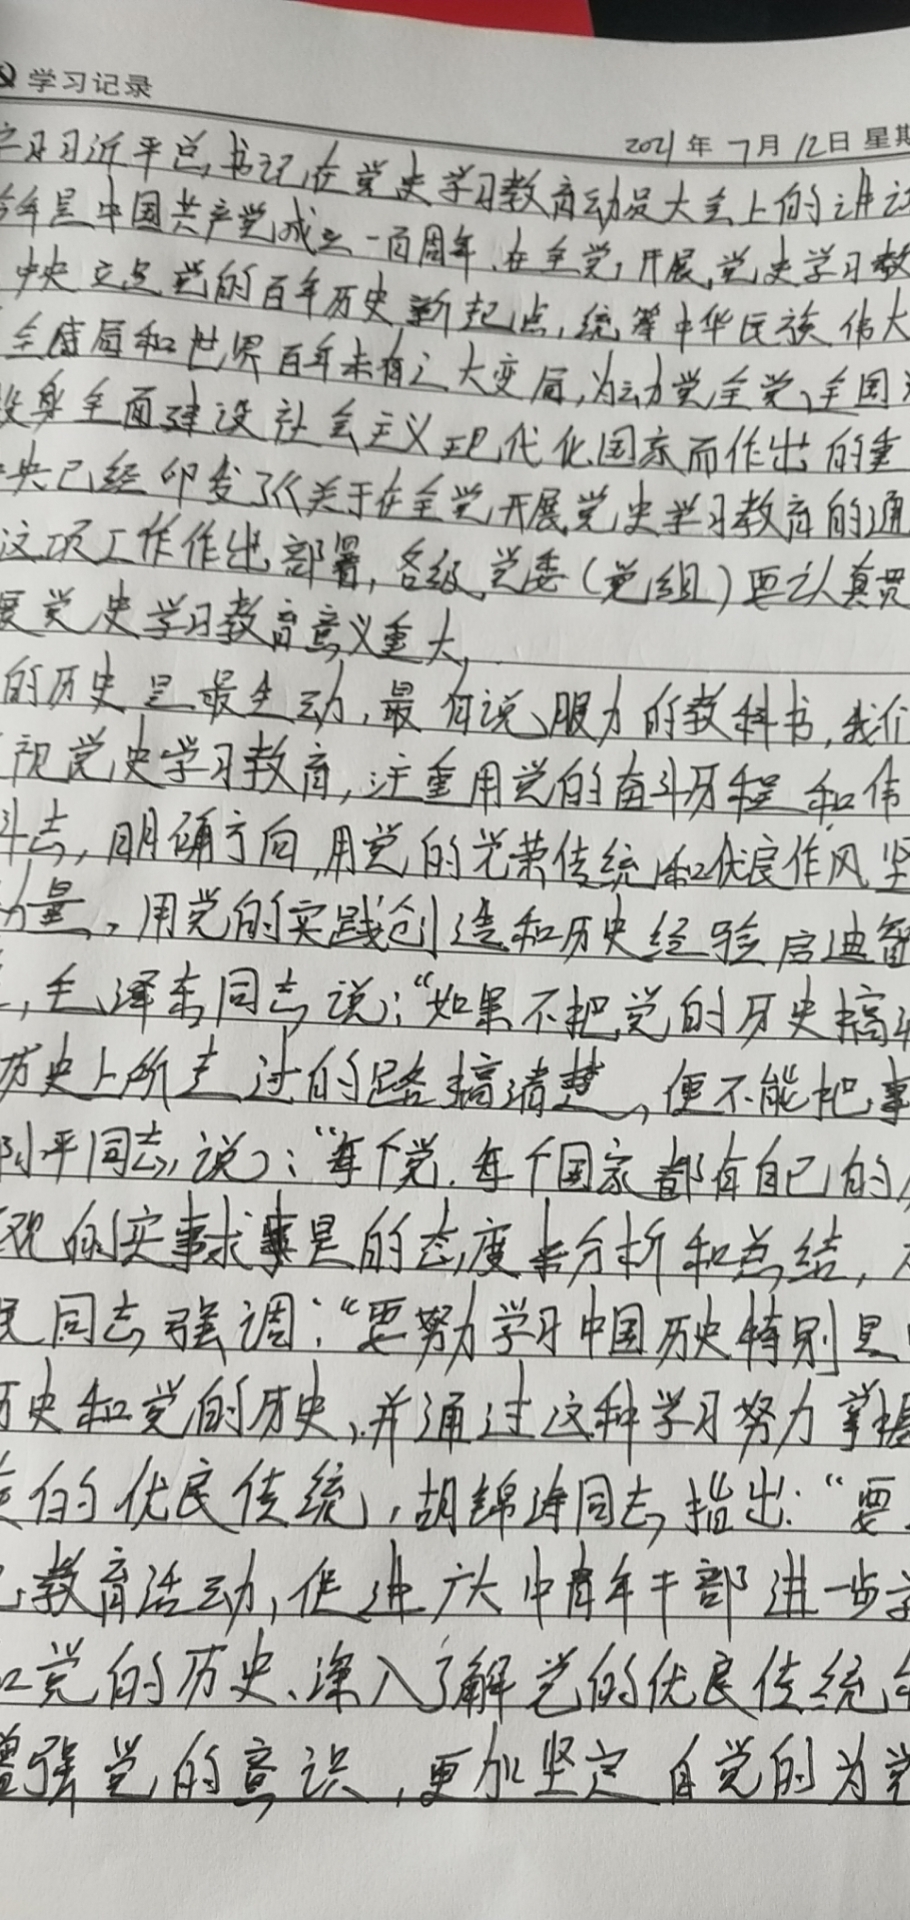 学习记录
2021年7月12日 星期
学习习近平总书记在党史学习教育动员大会上的讲话
今年是中国共产党成立一百周年、在全党开展党史学习教
中央立足党的百年历史新起点,统筹中华民族伟大
全局和世界百年未有之大变局,为动党全党、全国
投身全面建设社会主义现代化国家而作出的重
央已经印发了《关于在全党开展党史学习教育的通
这项工作作出部署,各级党委(党组)要认真贯
展党史学习教育意义重大,
的历史是最生动,最有说服力的教科书,我们
视党史学习教育,注重用党的奋斗历程和伟
斗志,明确方向,用党的光荣传统和优良作风坚
力量,用党的实践创造和历史经验启迪智
,毛泽东同志说:“如果不把党的历史搞
历史上所走过的路搞清楚,便不能把事
小平同志说:“每个党、每个国家都有自己的
观的实事求事是的态度来分析和总结,
民同志强调:“要努力学习中国历史特别是
历史和党的历史,并通过这种学习努力掌握
的优良传统,胡锦涛同志指出:“要
教育活动,促进广大中青年干部进一步学
和党的历史、深入了解党的优良传统
增强党的意识,更加坚定自觉的为党